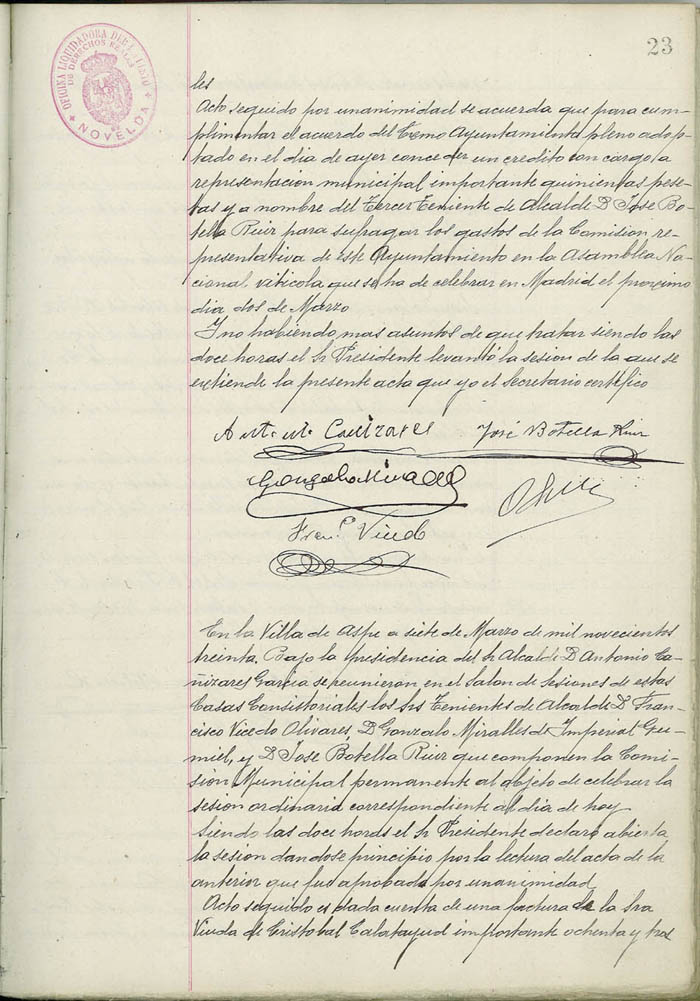 23
OFICINA LIQUIDADORA DEL
DE DERECHOS REALES
NOVELDA
les
Acto seguido por unanimidad se acuerda que para cum-
plimentar el acuerdo del Excmo Ayuntamiento pleno adop-
tado en el dia de ayer conceder un credito con cargo a
representacion municipal importante quinientas pese-
tas y a nombre del Tercer Teniente de Alcalde D Jose Bo-
tella Ruiz para sufragar los gastos de la Comision re-
presentativa de Este Ayuntamiento en la Asamblea Na-
cional viticola que se ha de celebrar en Madrid el proximo
dia dos de Marzo
Y no habiendo mas asuntos de que tratar siendo las
doce horas el Sr Presidente levantó la sesion de la que se
extiende la presente acta que yo el Secretario certifico
Antonio Cañizares José Botella Ruiz
Gonzalo Miralles
Franco Vicedo
En la Villa de Aspe a siete de Marzo de mil novecientos
treinta. Bajo la presidencia del Sr Alcalde D Antonio Ca-
ñizares Garcia se reunieron en el Salon de Sesiones de estas
Casas Consistoriales los Srs Tenientes de Alcalde D. Fran-
cisco Vicedo Olivares, D Gonzalo Miralles de Imperial Gu-
miel, y D Jose Botella Ruiz que componen la Comi-
sion Municipal permanente al objeto de celebrar la
sesion ordinaria correspondiente al dia de hoy
Siendo las doce horas el Sr Presidente declaró abierta
la sesion dandose principio por la lectura del acta de la
anterior que fue aprobada por unanimidad
Acto seguido es dada cuenta de una factura de la Sra
Viuda de Cristobal Calatayud importante ochenta y tres